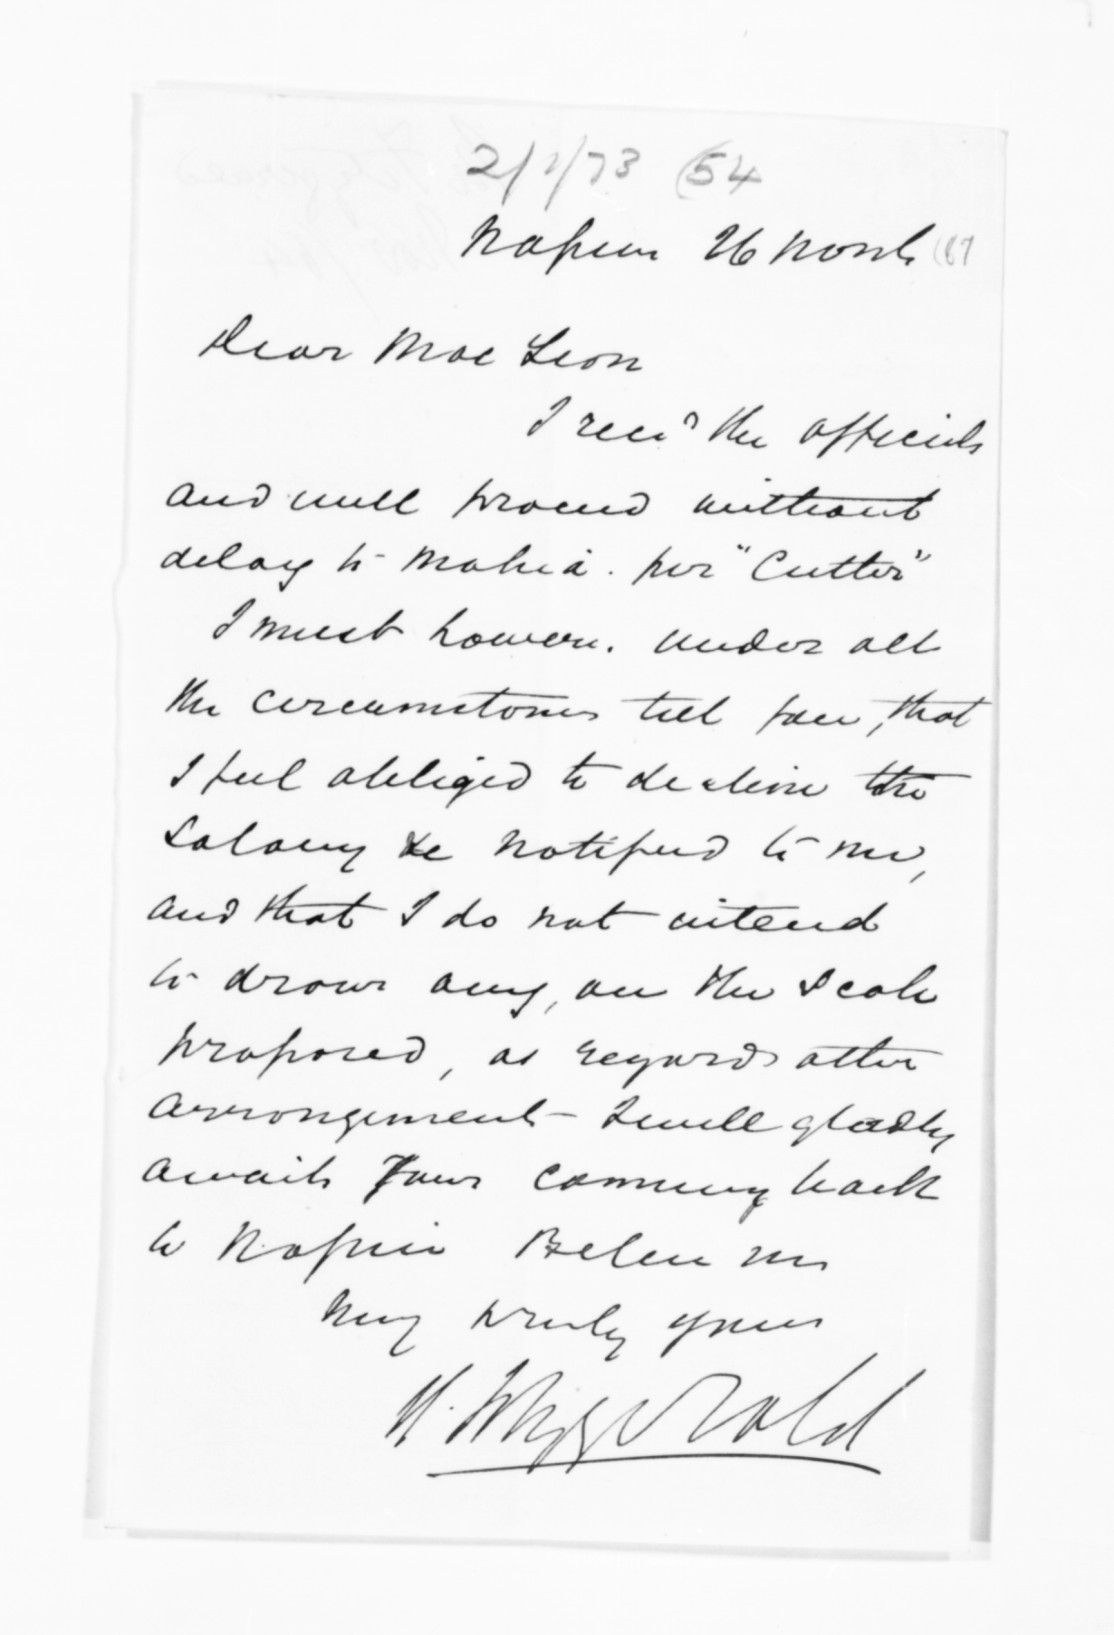 2/1/73 (54
Napier 26 Novb (67
Dear Mac Lean
I recd the officials
and will proceed without
delay to Mahia. per "Cutter"
I must however. under all
the circumstances tell you, that
I feel obliged to decline the
Salary &c notified to me,
and that I do not intend
to draw any, on the Scale
proposed, as regards other
arrangement - I will gladly
await Your comming back
to Napier Believe me
Very truly yours
FitzGerald